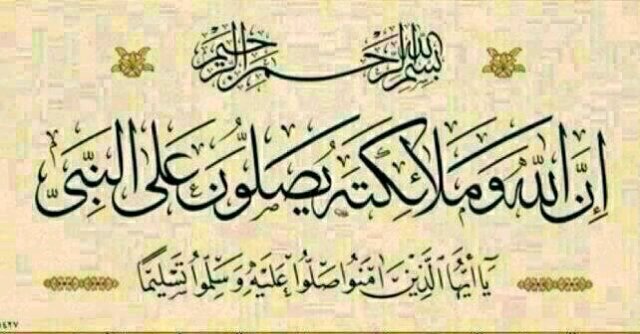 بسم الله الرحمن الرحيم
إِنَّ اللهَ وَمَلَائِكَتَهُ يُصَلُّونَ عَلَى النَّبِيِّ
يَا أَيُّهَا الَّذِينَ آمَنُوا صَلُّوا عَلَيْهِ وَسَلِّمُوا تَسْلِيمًا
١٤٢٧